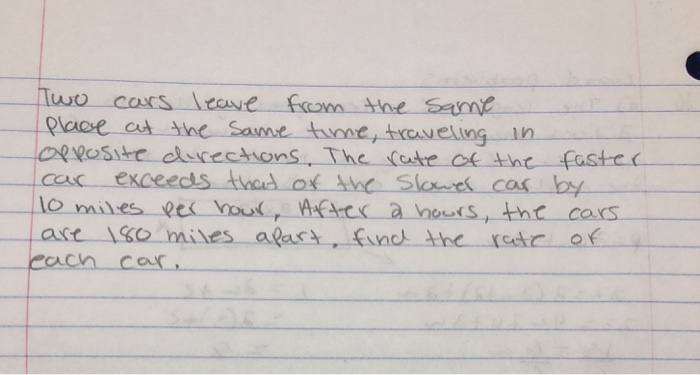 Two cars leave from the same
place at the same time, traveling in
opposite directions. The rate of the faster
car exceeds that of the slower car by
10 miles per hour, After 2 hours, the cars
are 180 miles apart. find the rate of
each car.